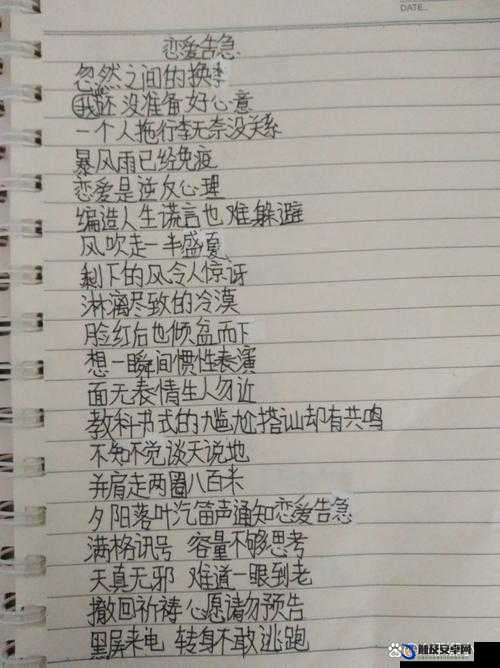 DATE.
恋爱告急
忽然之间的换季
我还没准备好心意
一个人拖行李无奈没关系
暴风雨已经免疫
恋爱是逆反心理
编造人生谎言也难躲避
风吹走一半盛夏
剩下的风令人惊讶
淋漓尽致的冷漠
脸红后也倾盆而下
想一瞬间惯性表演
面无表情生人勿近
教科书式的尴尬搭讪却有共鸣
不知不觉谈天说地
并肩走两圈八百米
夕阳落叶汽笛声通知恋爱告急
满格讯号 容量不够思考
天真无邪 难道一眼到老
撤回祈祷心愿请勿预告
黑屏来电 转身不敢逃跑
触及安卓网